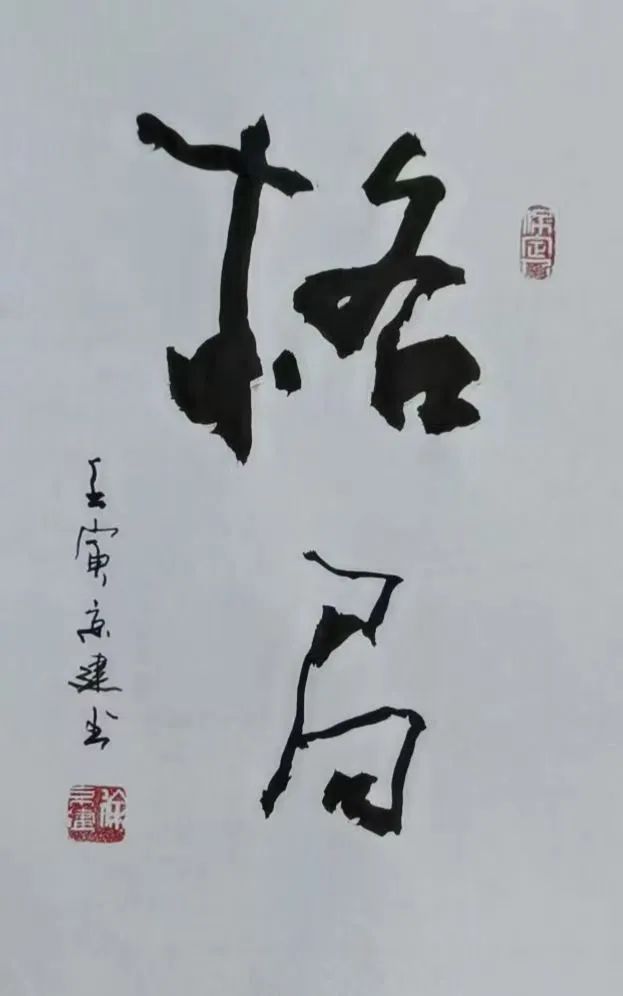 格局
壬寅京建书